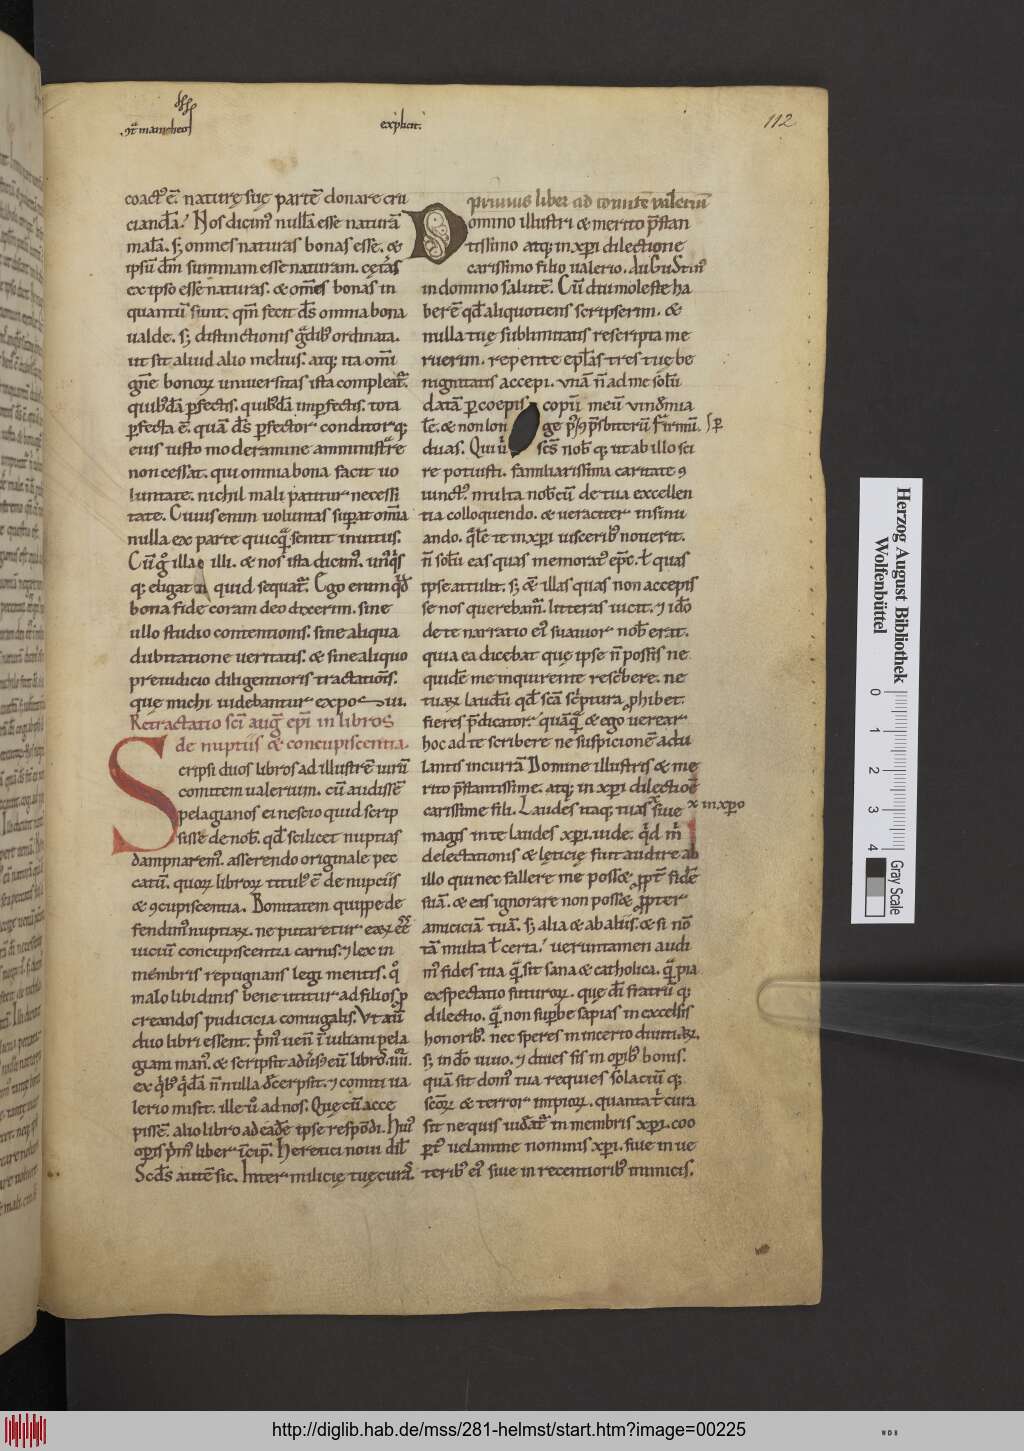 112
explicit.
coact9 ē. naturę suę partē donare cru
ciandā. Nos dicim9 nullā esse naturā
malā. s; omnes naturas bonas esse. &
ipsū dm̄ summam esse naturam. cęt̄as
ex ipso esse naturas. & om̄es bonas in
quantū sunt. qm̄ fecit ds̄ omnia bona
ualde. s; distinctionis g̃dib9 ordinata.
ut sit aliud alio melius. atq; ita om̄i
gn̄e bonoꝝ uniuersitas ista compleat̃.
quib9dā ꝑfectis. quib9dā inꝑfectis. tota
ꝑfecta ē. quā ds̄ ꝑfector conditorq;
eius iusto moderamine amministrare
non cessat. qui omnia bona facit uo
luntate. nichil mali patitur necessi
tate. Cuius enim uoluntas suꝑat om̄ia
nulla ex parte quicq̃ sentit inuitus.
Cū g̊ illa illi. & nos ista dicim9. un9qis
q; eligat quid sequat̃. Ego enim qd̄
bona fide coram deo dixerim. sine
ullo studio contentionis. sine aliqua
dubitatione ueritatis. & sine aliquo
preiudicio diligentioris tractationis.
quę michi uidebantur exposui.
Retractatio sc̄i auḡ ep̄i in libros
de nuptiis & concupiscentia.
Scripsi duos libros ad illustrē uirū
comitem ualerium. cū audissē
pelagianos ei nescio quid scrip
sisse de nob̄. qd̄ scilicet nuptias
dampnarem9. asserendo originale pec
catū. quoꝝ libroꝝ titul9 ē de nupciis
& ꝯcupiscentia. Bonitatem quippe de
fendim9 nuptiaꝝ. ne putaretur eaꝝ ee͞
uiciū concupiscentia carnis. & lex in
membris repugnans legi mentis. q̊
malo libidinis bene utitur ad filios ꝓ
creandos pudicicia coniugalis. Vt aū
duo libri essent. p̄m9 uen̄ ī iuliani pela
giani man9. & scripsit adus9 eū libros
ex qib9 qdā n̄ nulla dcerpsit. & comiti ua
lerio misit. ille ū ad nos. Quę cū acce
pissē. alio libro ad eadē ipse respōdi. Hui9
oꝑis p̄m9 liber īcip̄. Heretici noui dil̄
Scd̄s autē sic. Inter milicię tuę curā.
primus liber ad comitē valeriū
Domino illustri & merito p̄stan
tissimo atq; in xp̄i dilectione
carissimo filio ualerio. Augustin9
in domino salutē. Cū diu moleste ha
berē qd̄ aliquotiens scripserim. &
nulla tuę sublimitatis rescripta me
ruerim. repente ep̄las tres tuę be
nignitatis accepi. vnā n̄ ad me solū
datā ꝑ coepisc̄opū meū vindemia
lē. & non longe p9 ꝑ ꝯp̄sbiterū firmū
duas. Qui ū sc̄s nob̄ q; ut ab illo sci
re potuisti. familiarissima caritate ꝯ
iunct9. multa nob̄cū de tua excellen
tia colloquendo. & ueraciter insinu
ando. q̄le te in xp̄i uisceribus nouerit.
n̄ solū eas quas memorat9 ep̄c. ł quas
ipse attulit. s; & illas quas non accepis
se nos querebam̃. litteras uicit. & idō
de te narratio ei9 suauior nob̄ erat.
quia ea dicebat quę ipse n̄ possis ne
quidē me inquirente rescribere. ne
tuaꝝ laudū qd̄ scā scptura ꝓhibet.
fieres p̄dicator. quāq̃ & ego uerear
hoc ad te scribere ne suspicionē adu
lantis incurrā Domine illustris & me
rito p̄stantissime. atq; in xp̄i dilectioē
carissime fili. Laudes itaq; tuas siue in xp̄o
magis in te laudes xp̄i. uide. qd̄ m
delectationis & lęticię fuit audire ab
illo qui nec fallere me posset ꝓpt̄ fidē
suā. & eas ignorare non posset ꝓpter
amiciciā tuā. s; alia & ab aliis. & si nō
tā multa ł certa. ueruntamen audi
m9 fides tua q̄ sit sana & catholica. q̄ pia
exspectatio futuroꝝ. quę dī fratrū q;
dilectio. q̄ non suꝑbe sapias in excelsis
honorib9. nec speres in incerto diuitiaꝝ.
s; in dō uiuo. & diues sis in oꝑib9 bonis.
quā sit dom9 tua requies solaciū q;
sc̄oꝝ & terror impioꝝ. quanta t̄ cura
sit ne quis insidiat̃ in membris xp̄i. coo
pt9 uelamine nominis xp̄i. siue in ue
terib9 ei9 siue in recentiorib9 inimicis.
Herzog August Bibliothek
Wolfenbüttel
0 1 2 3 4
Gray Scale
http://diglib.hab.de/mss/281-helmst/start.htm?image=00225
WDB